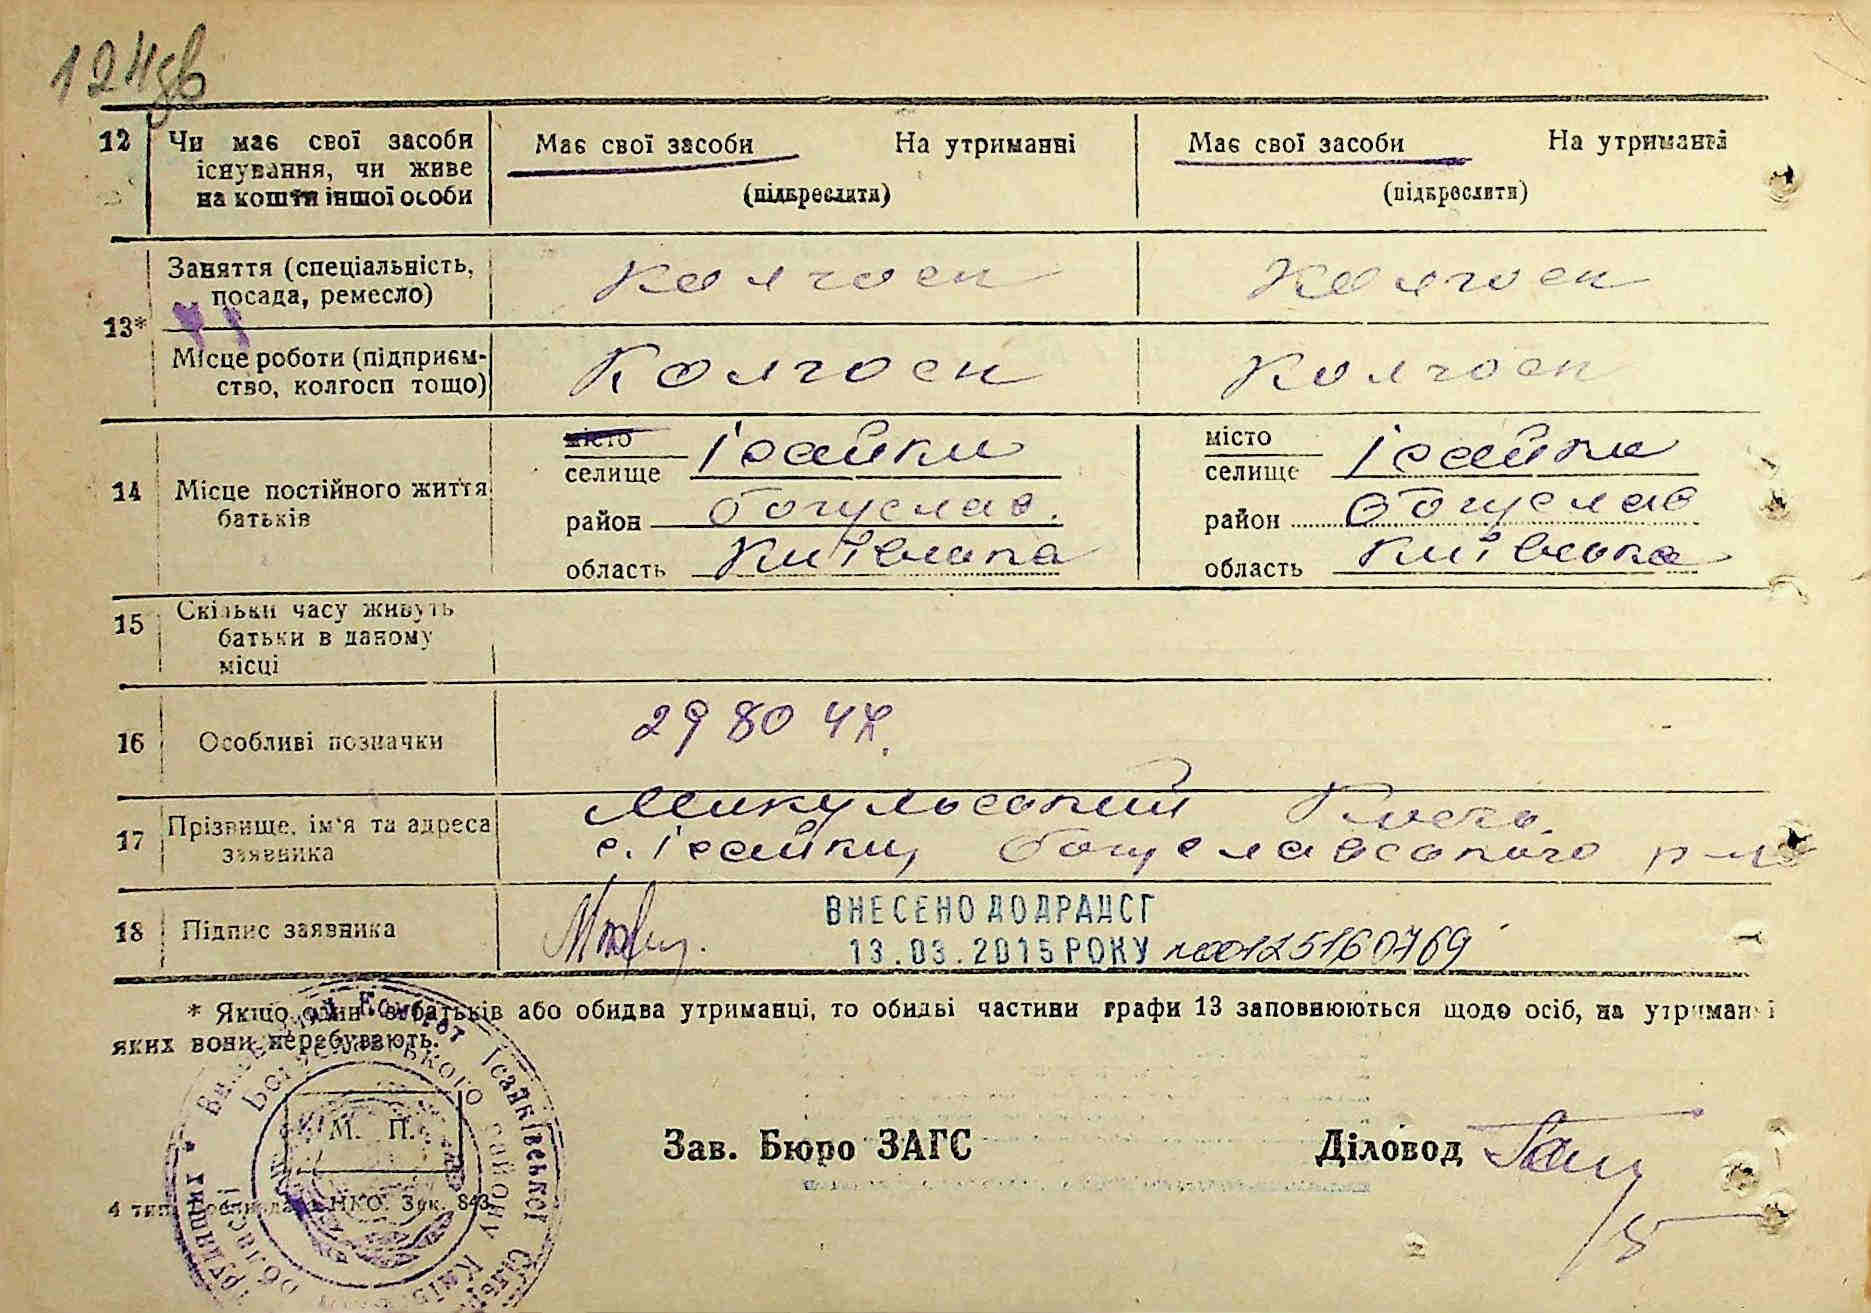 124зв
12 Чи має свої засоби існування, чи живе на кошти іншої особи
Має свої засоби На утриманні
(підкреслити)
Має свої засоби На утриманні
(підкреслити)
13* Заняття (спеціальність, посада, ремесло)
Колгосп
Колгосп
Місце роботи (підприєм-
ство, колгосп тощо)
Колгосп
Колгосп
14 Місце постійного життя батьків
місто
селище Ісайки
район Богуслав.
область Київська
місто
селище Ісайки
район Богуслав
область Київська
15 Скільки часу живуть батьки в даному місці
16 Особливі позначки
298044
17 Прізвище, ім'я та адреса заявника
Микульський
с. Ісайки, Богуславського р-н
18 Підпис заявника
ВНЕСЕНО ДО ДРАЦСГ
13.03.2015 РОКУ №00125160769
* Якщо один з батьків або обидва утриманці, то обидві частини графи 13 заповнюються щодо осіб, на утриманні
яких вони перебувають.
Виконавчий Комітет Ісайківської Сіль
Богуславського району Київ
області
М. П.
Зав. Бюро ЗАГС
Діловод
4 тип. НКО. Зак. 843